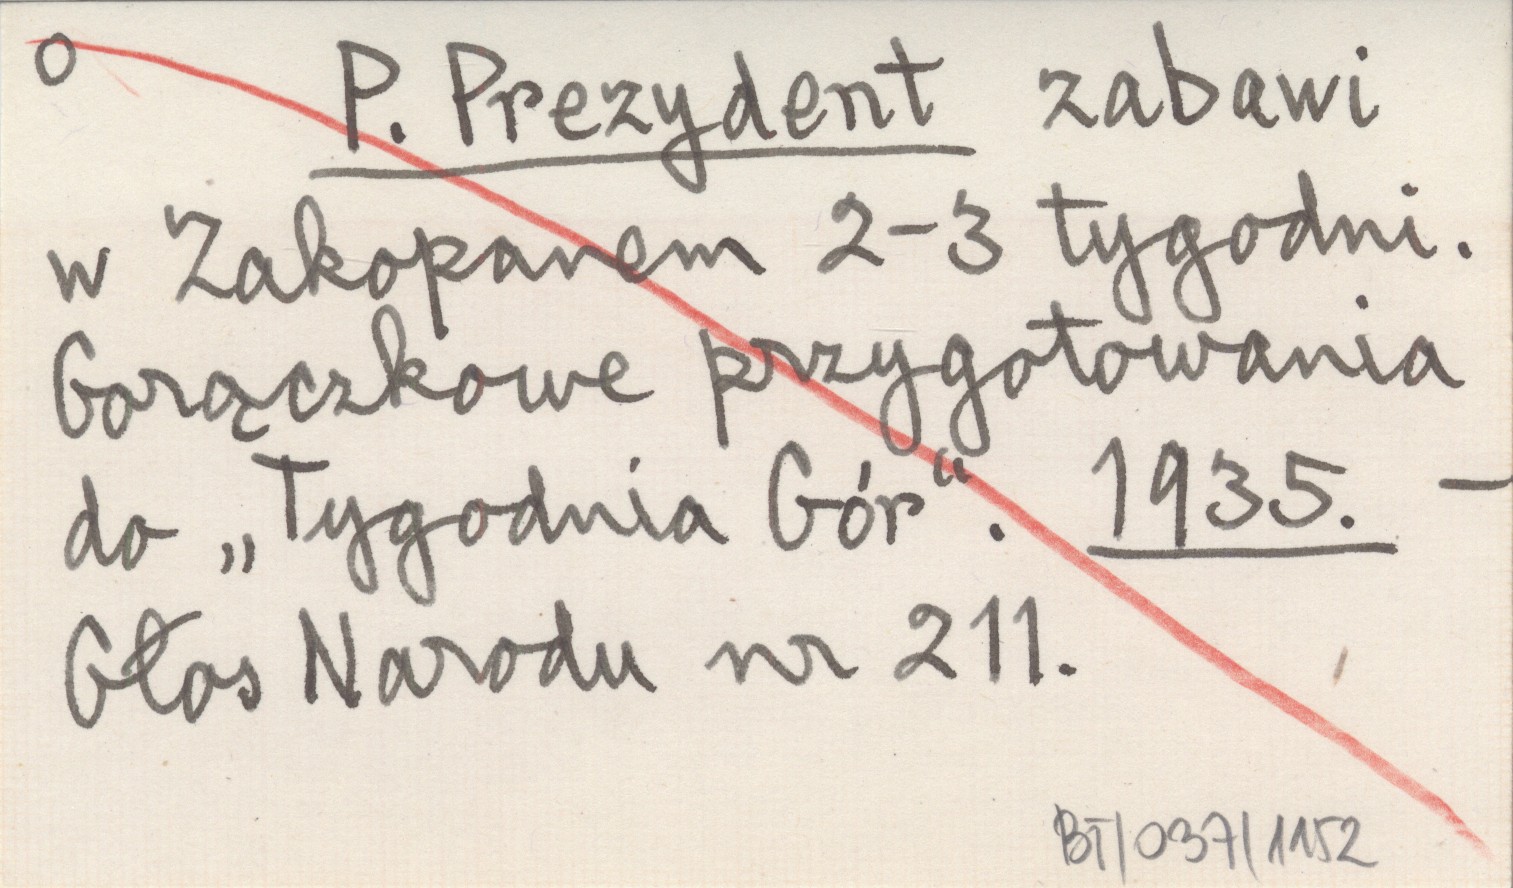 o P. Prezydent zabawi
w Zakopanem 2-3 tygodni.
Gorączkowe przygotowania
do „Tygodnia Gór“. 1935. —
Głos Narodu nr 211.
BT/037/1152